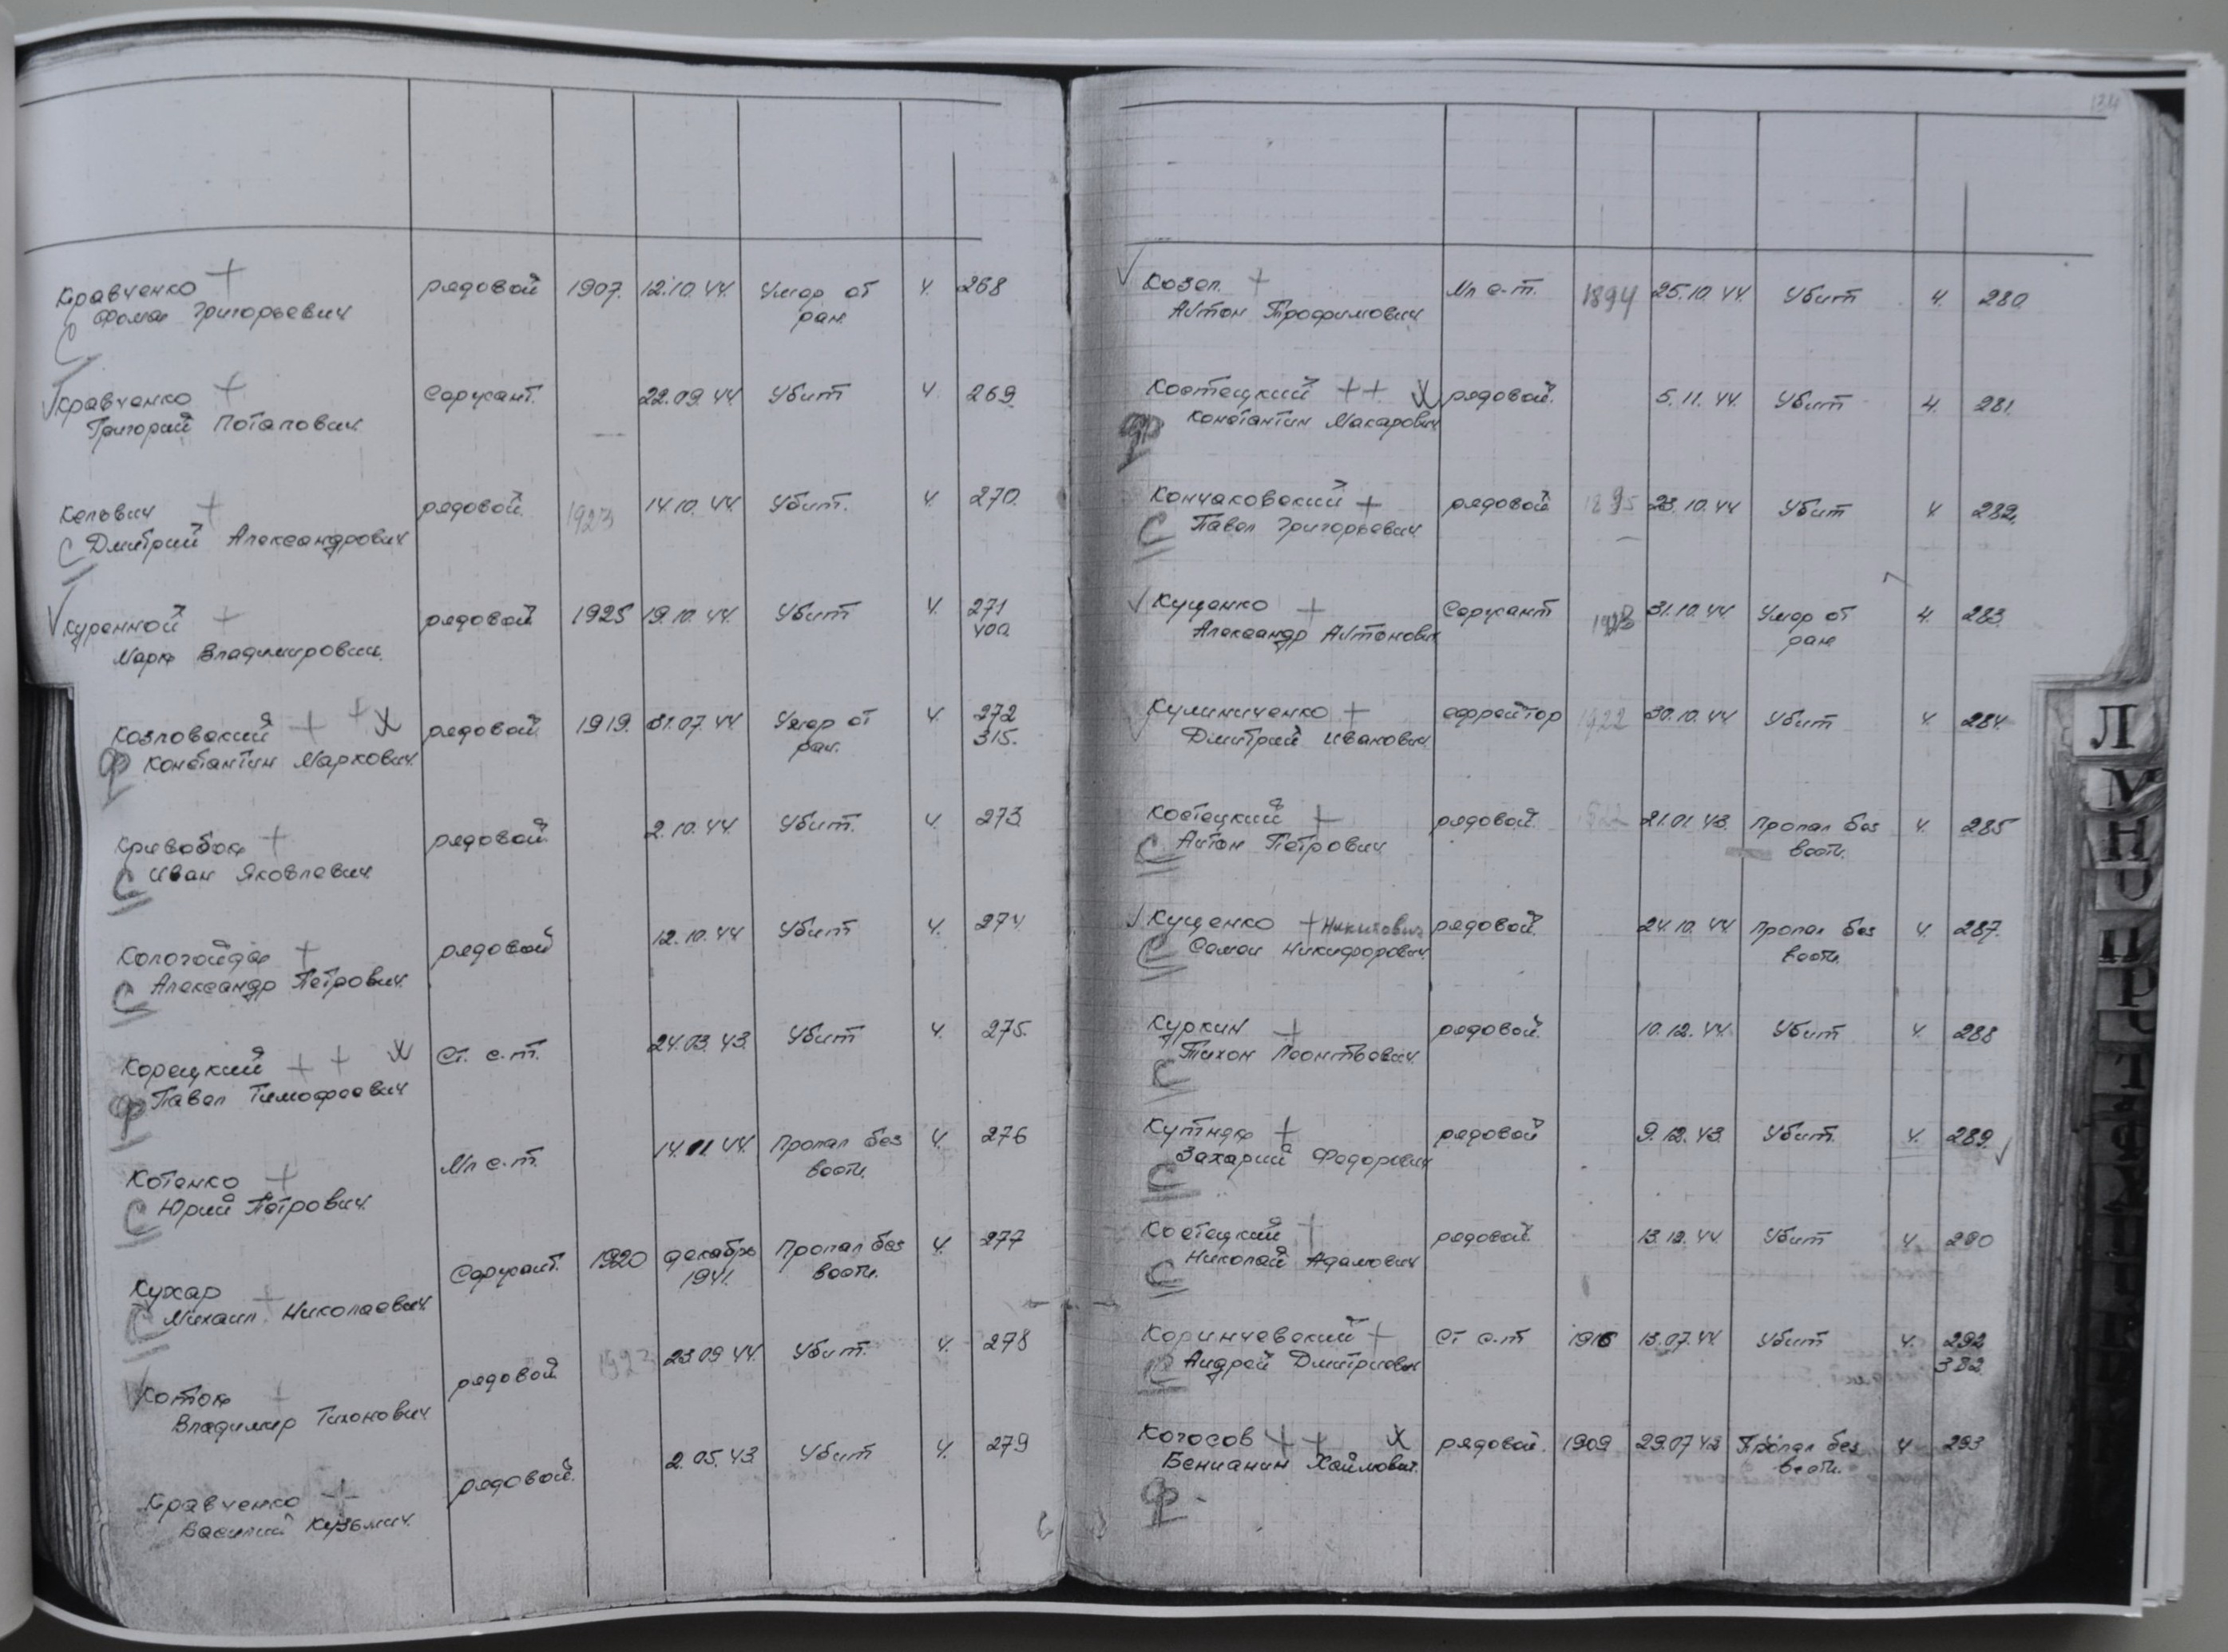 Кравченко + рядовой 1907. 12.10.44. Умер от 4. 268
Фома Григорьевич ран.
С
✓ Кравченко + Сержант. 22.09.44. Убит 4. 269.
Григорий Потапович —
Кельвич + рядовой. 1923 14.10.44. Убит. 4. 270.
С Дмитрий Александрович
✓ Куренной + рядовой 1925 19.10.44. Убит 4. 271
Марк Владимирович. 400.
Козловский + + X рядовой 1919. 31.07.44. Умер от 4. 272
Ф Константин Маркович. ран. 315.
Кривобок + рядовой 2.10.44. Убит. 4. 273
С Иван Яковлевич
Кологойда + рядовой 12.10.44 Убит 4. 274
С Александр Петрович.
Корецкий + + X Ст. с-т. 24.03.43. Убит 4. 275.
Ф Павел Тимофеевич
Котенко + Мл с-т. 14.11.44. Пропал без 4. 276
С Юрий Петрович. вести.
Кухар + Сержант. 1920 декабрь Пропал без 4. 277
С Михаил Николаевич 1941. вести.
✓ Коток + рядовой 1923 23.09.44. Убит. 4. 278
Владимир Тихонович
Кравченко + рядовой. 2.05.43. Убит 4. 279
Василий Кузьмич.
134
✓ Козел. + Мл с-т. 1894 25.10.44. Убит 4. 280.
Антон Трофимович
Костецкий + + X рядовой. 5.11.44. Убит 4. 281.
Ф Константин Макарович
Кончаковский + рядовой 1895 23.10.44 Убит 4. 282.
С Павел Григорьевич
✓ Куценко + Сержант 31.10.44. Умер от 4. 283.
Александр Антонович ран.
✓ Кулиниченко + ефрейтор 1922 30.10.44 Убит 4. 284.
Дмитрий Иванович.
Костецкий + рядовой. 1922 21.01.43. Пропал без 4. 285
С Антон Петрович вести.
✓ Кущенко + Никитович рядовой. 24.10.44 Пропал без 4. 287.
С Семен Никифорович вести.
Куркин + рядовой. 10.12.44. Убит 4. 288
С Тихон Леонтьевич
Кутняк + рядовой 9.12.43. Убит. 4. 289. ✓
С Захарий Федорович
Костецкий + рядовой. 13.12.44 Убит 4. 290
С Николай Адамович
Коринчевский + Ст с-т 1916 13.07.44. Убит 4. 292
С Андрей Дмитриевич 382.
Когосов + + X рядовой. 1909 29.07.43 Пропал без 4 293
Бенианин Хаймович. вести.
Ф
Л
М
Н
О
П
Р